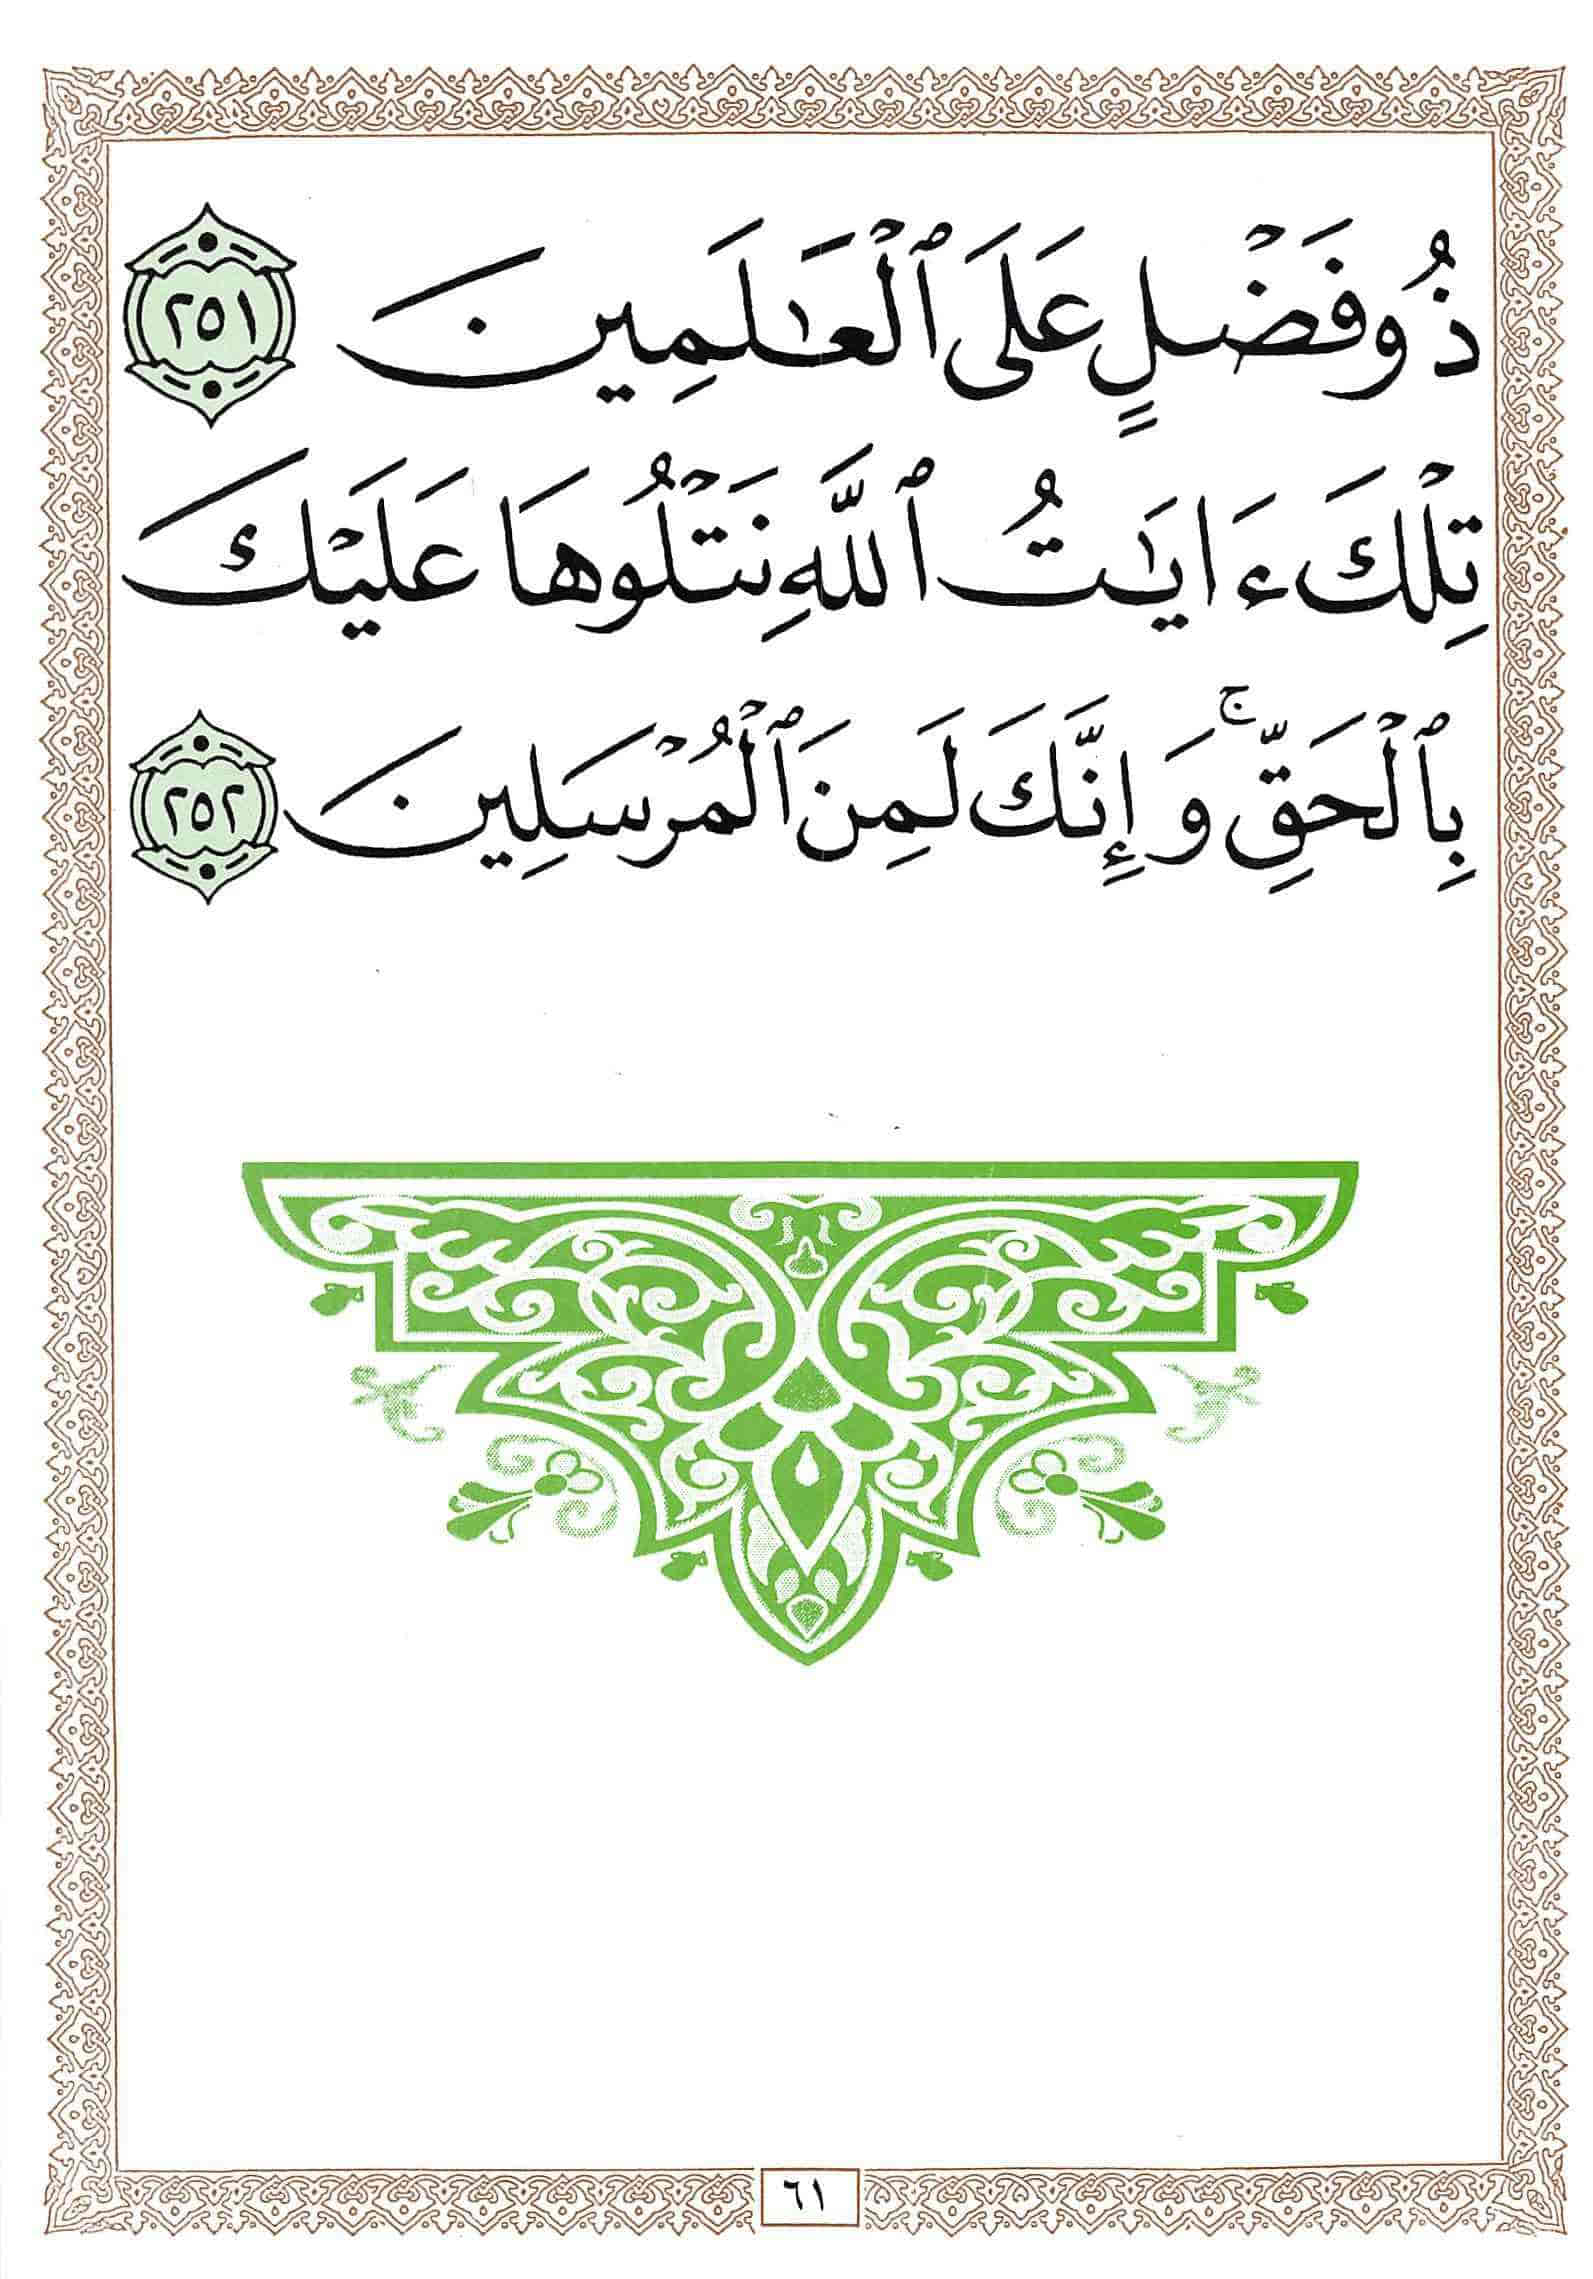 ذُو فَضْلٍ عَلَى ٱلْعَٰلَمِينَ ٢٥١
تِلْكَ ءَايَٰتُ ٱللَّهِ نَتْلُوهَا عَلَيْكَ
بِٱلْحَقِّ ۚ وَإِنَّكَ لَمِنَ ٱلْمُرْسَلِينَ ٢٥٢
٦١